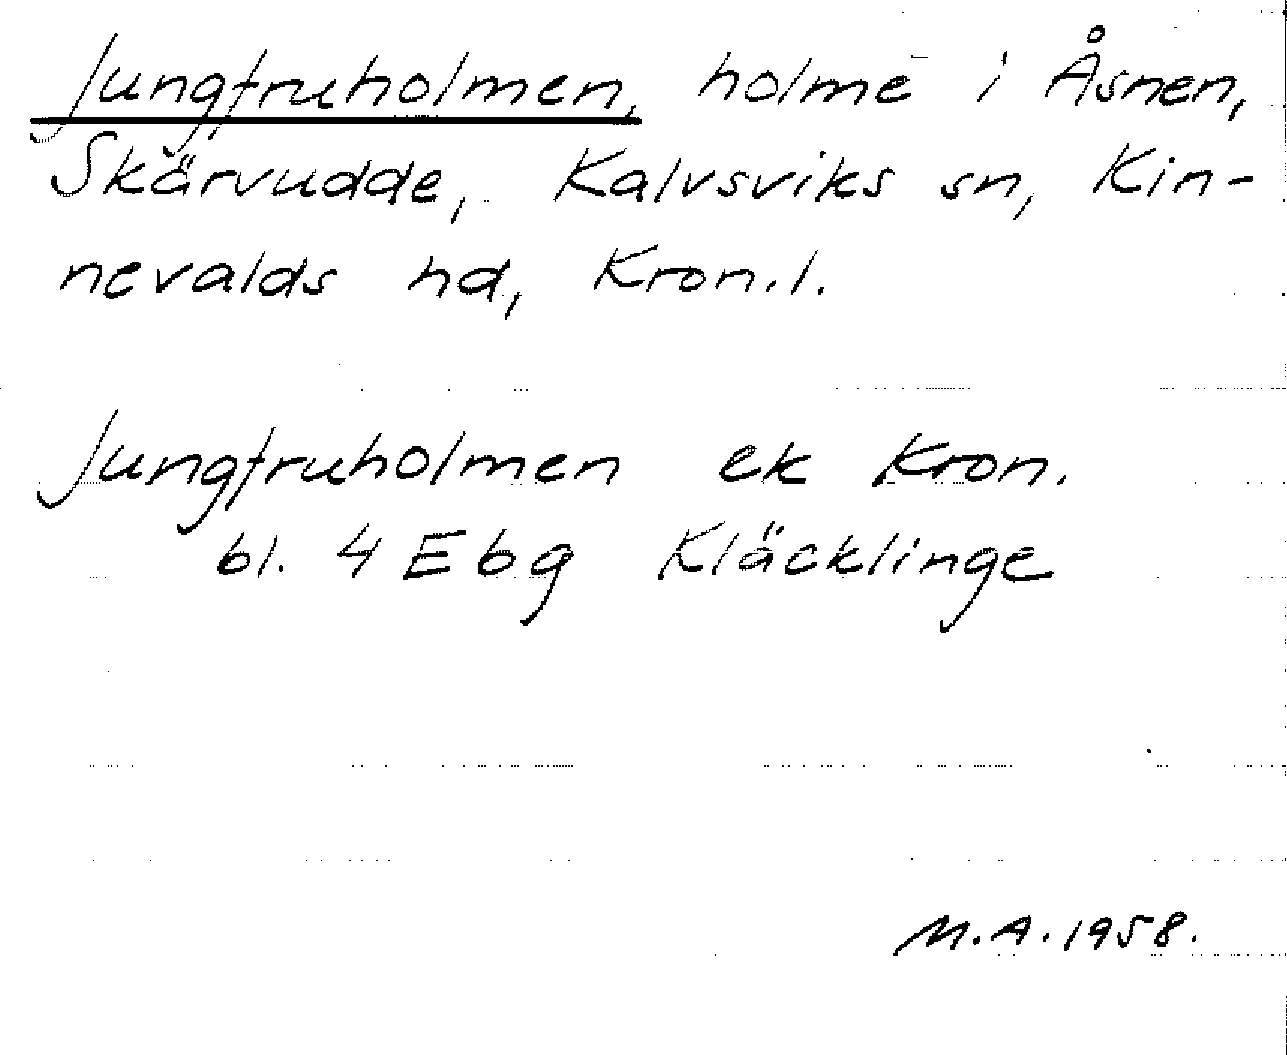 Jungfruholmen, holme i Åsnen,
Skärvudde, Kalvsviks sn, Kin-
nevalds hd, Kron.l.
Jungfruholmen ek Kron.
bl. 4 Ebg Kläcklinge
M.A. 1958.